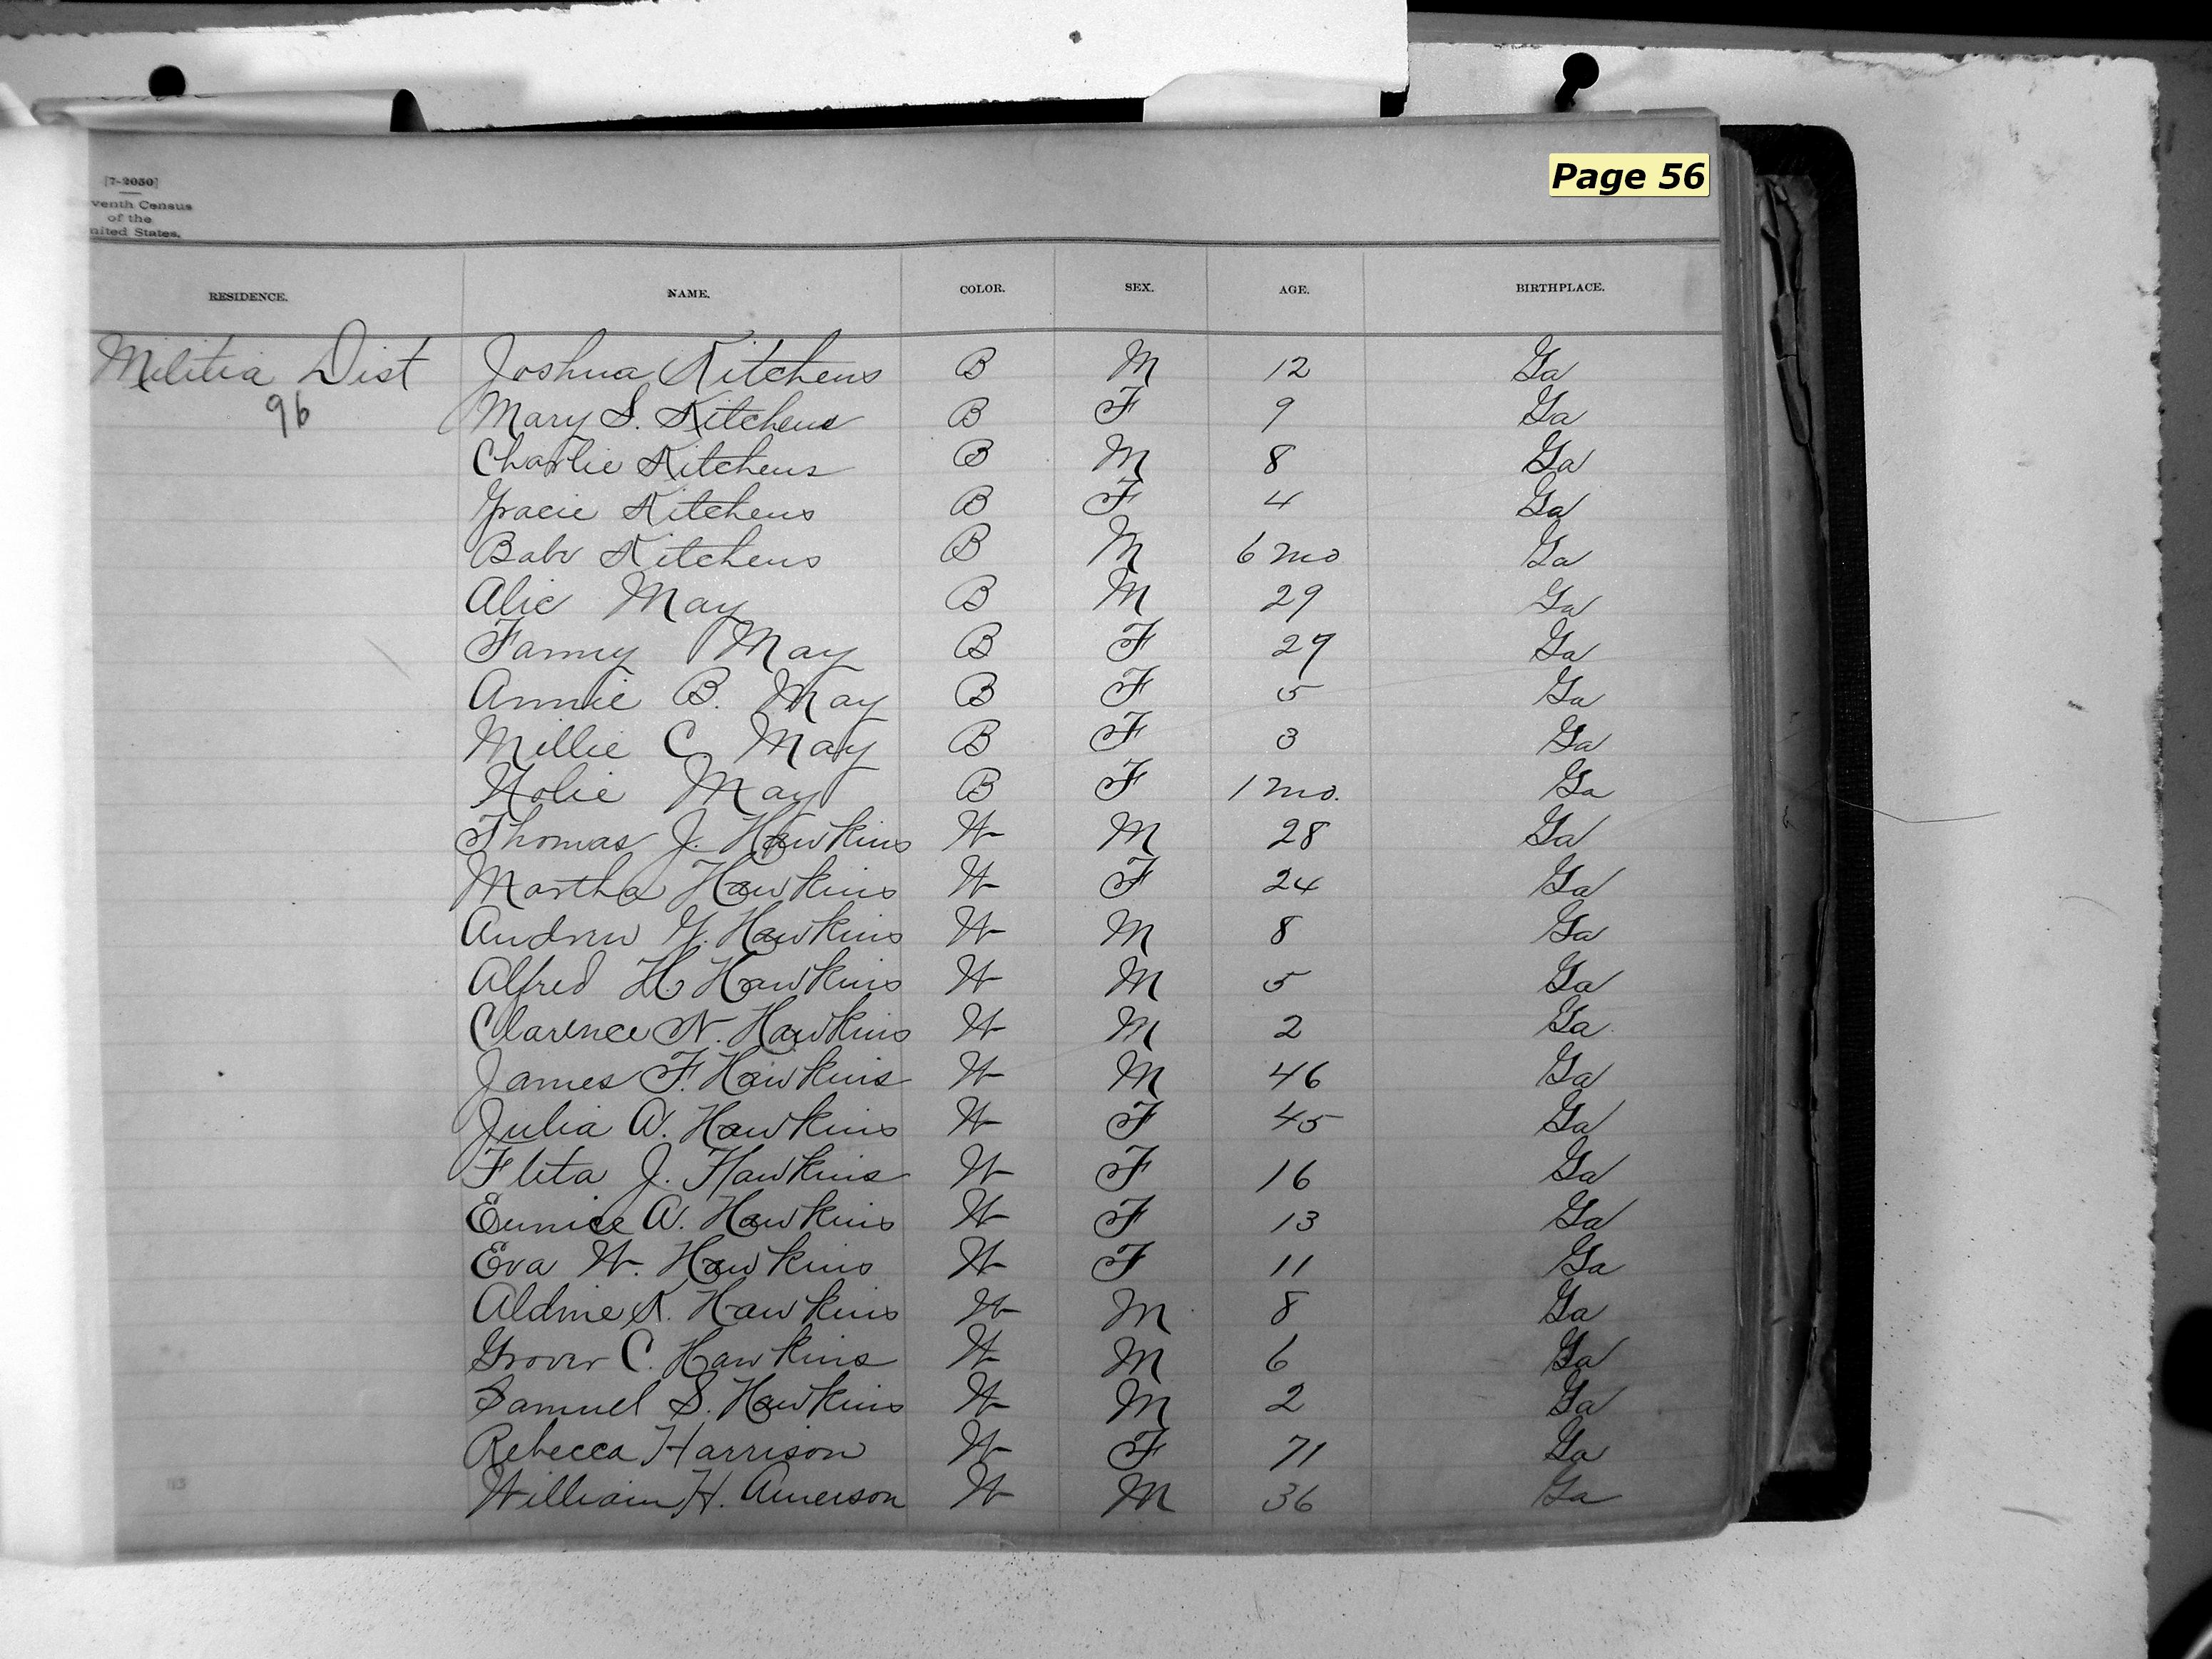 Page 56
[7-2050]
venth Census
of the
nited States.
RESIDENCE. NAME. COLOR. SEX. AGE. BIRTHPLACE.
Militia Dist Joshua Kitchens B M 12 Ga
96 Mary S. Kitchens B F 9 Ga
Charlie Kitchens B M 8 Ga
Gracie Kitchens B F 4 Ga
Babe Kitchens B M 6 mo Ga
Alic May B M 29 Ga
Fanny May B F 29 Ga
Annie B. May B F 5 Ga
Millie C May B F 3 Ga
May B F 1 mo. Ga
Thomas J. Hawkins W M 28 Ga
Martha Hawkins W F 24 Ga
Andrew G. Hawkins W M 8 Ga
Alfred H. Hawkins W M 5 Ga
Clarence N. Hawkins W M 2 Ga
James F. Hawkins W M 46 Ga
Julia A. Hawkins W F 45 Ga
Fleta J. Hawkins W F 16 Ga
Eunice A. Hawkins W F 13 Ga
Eva W. Hawkins W F 11 Ga
Aldine K. Hawkins W M 8 Ga
Grover C. Hawkins W M 6 Ga
Samuel S. Hawkins W M 2 Ga
Rebecca Harrison W F 71 Ga
William H. Amerson W M 36 Ga